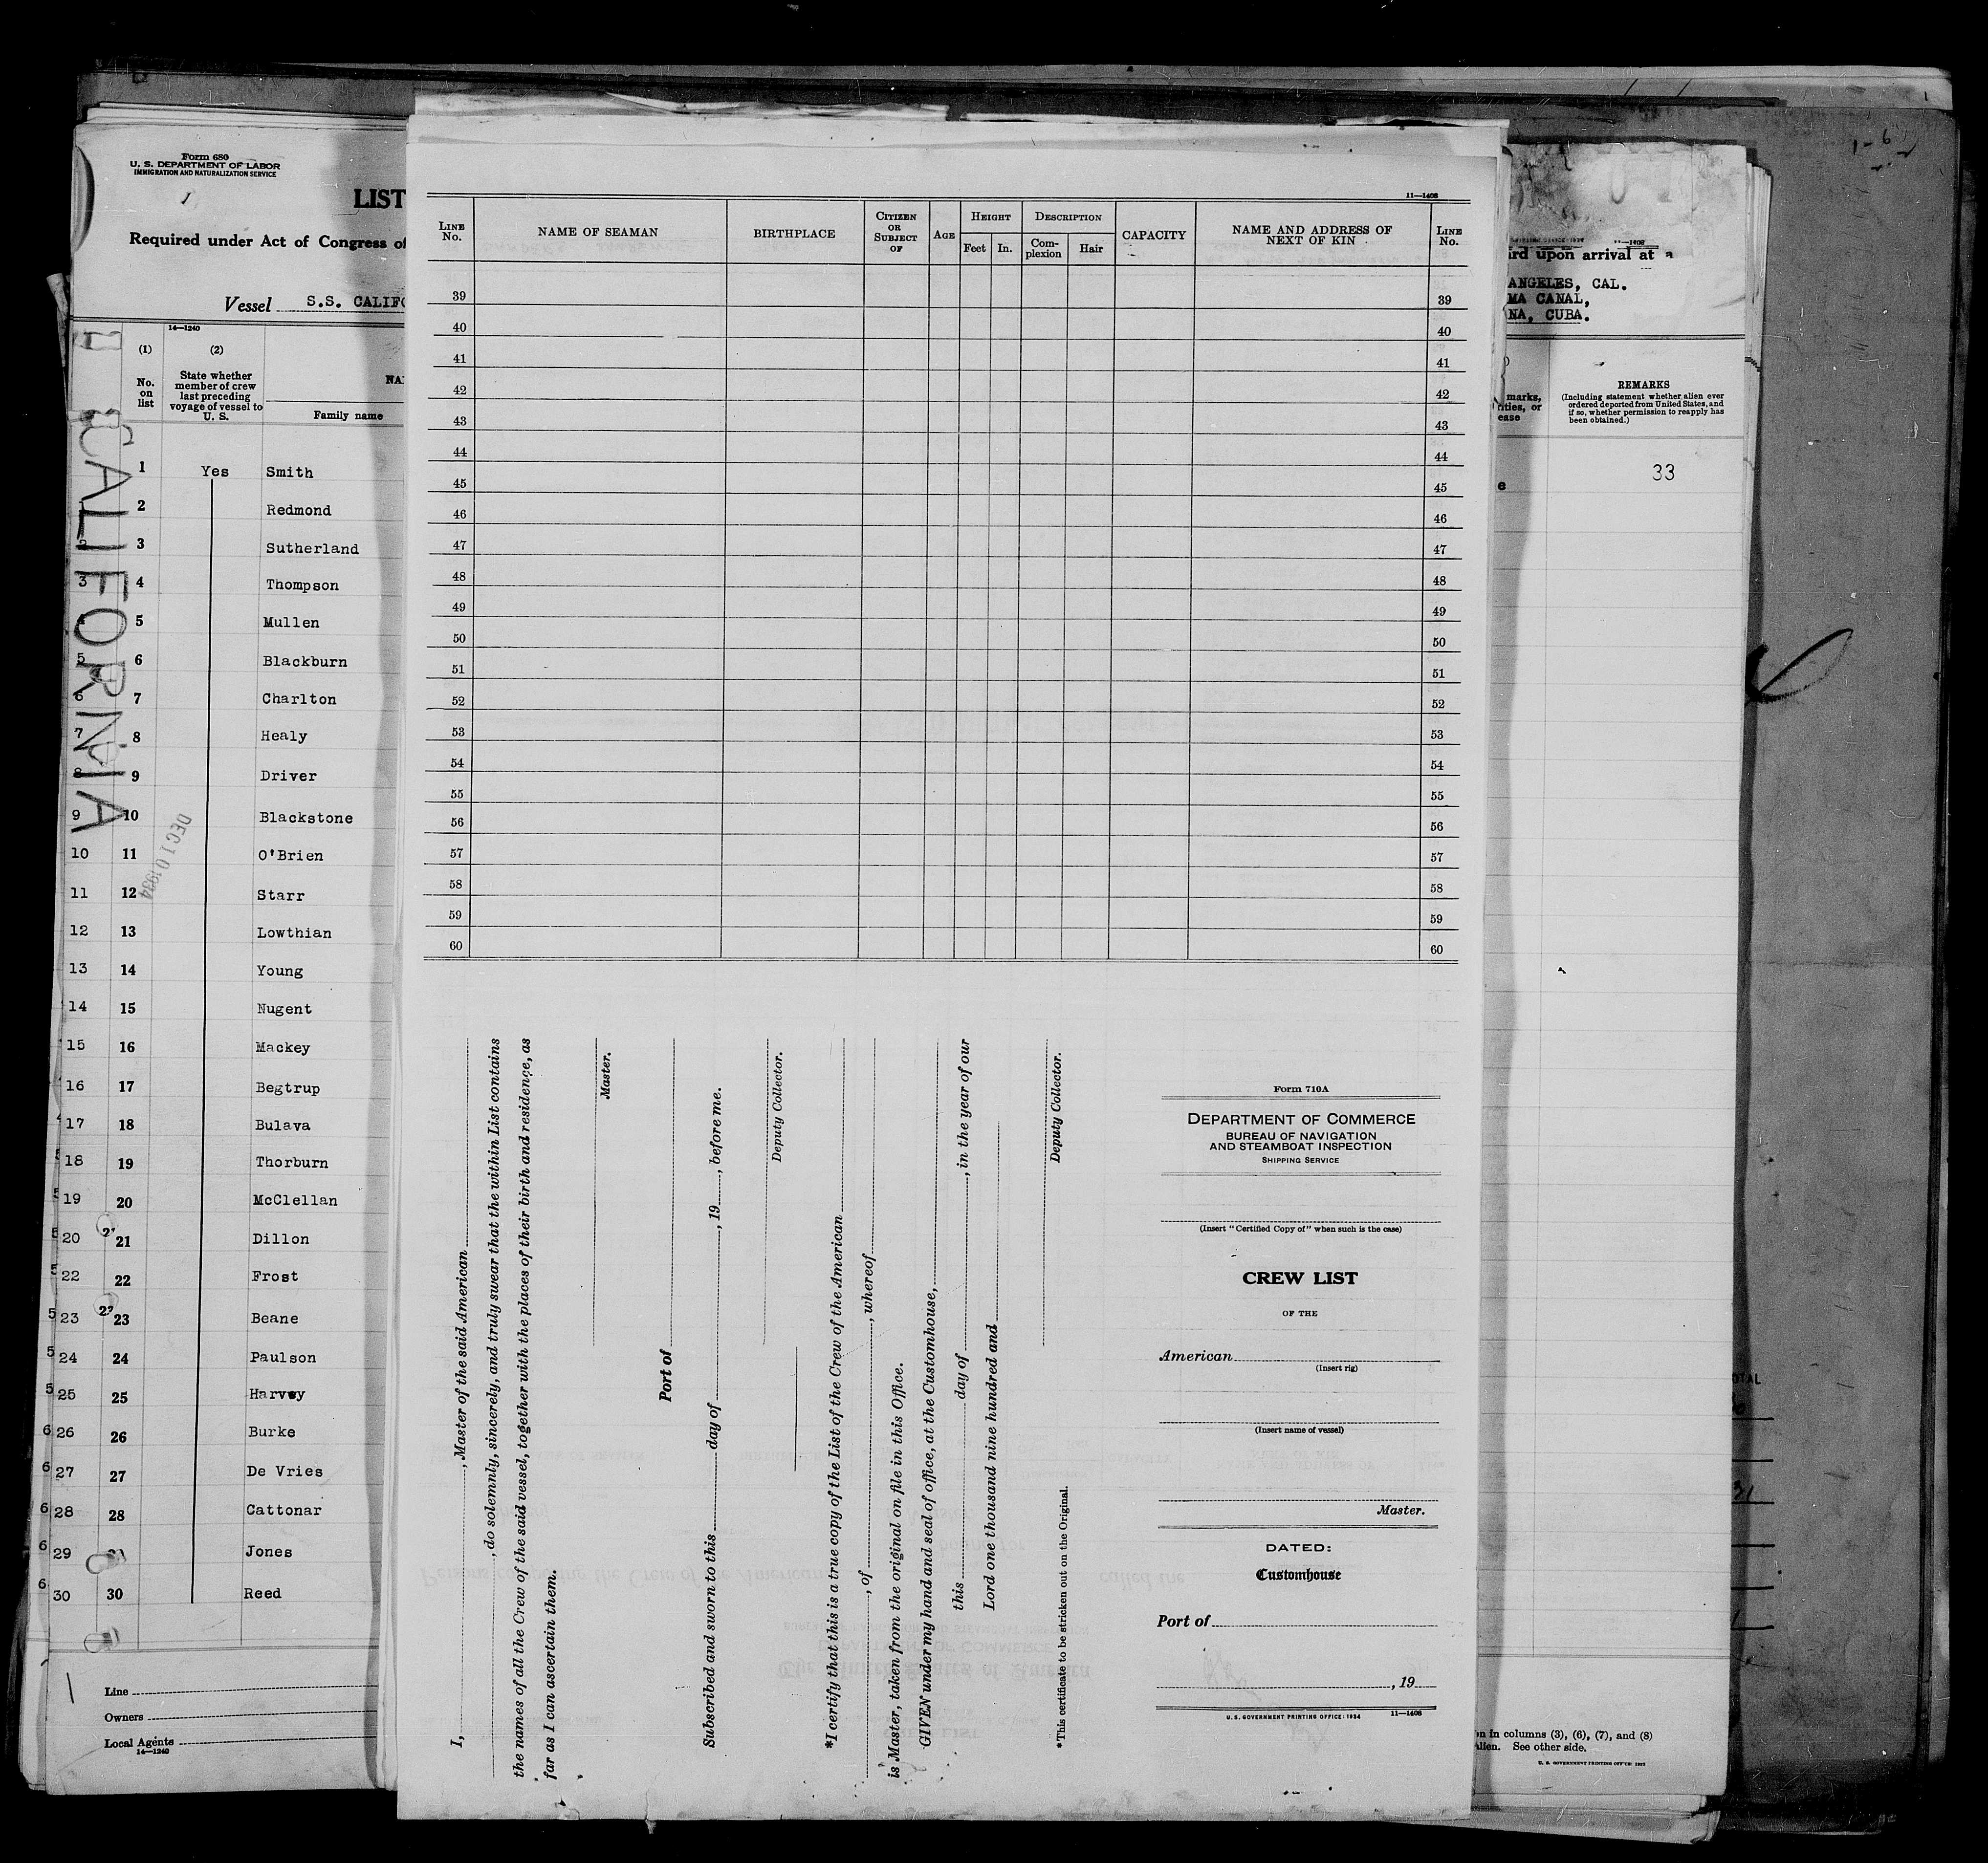 Form 680
U. S. DEPARTMENT OF LABOR
IMMIGRATION AND NATURALIZATION SERVICE
LIST
Required under Act of Congress of
Vessel S.S. CALIFO
14—1240
(1)
No.
on
list
(2)
State whether
member of crew
last preceding
voyage of vessel to
U. S.
Family name
CALIFORNIA
DEC 10 1934
1 Yes Smith
2 Redmond
3 Sutherland
3 4 Thompson
5 Mullen
5 6 Blackburn
6 7 Charlton
7 8 Healy
8 9 Driver
9 10 Blackstone
10 11 O'Brien
11 12 Starr
12 13 Lowthian
13 14 Young
14 15 Nugent
15 16 Mackey
16 17 Begtrup
17 18 Bulava
18 19 Thorburn
19 20 McClellan
20 21 Dillon
22 22 Frost
23 23 Beane
24 24 Paulson
25 25 Harvey
26 26 Burke
27 27 De Vries
28 28 Cattonar
29 Jones
30 30 Reed
Line
Owners
Local Agents
14—1240
11—1408
LINE No. NAME OF SEAMAN BIRTHPLACE CITIZEN OR SUBJECT OF AGE HEIGHT Feet In. DESCRIPTION Complexion Hair CAPACITY NAME AND ADDRESS OF NEXT OF KIN LINE No.
39 39
40 40
41 41
42 42
43 43
44 44
45 45
46 46
47 47
48 48
49 49
50 50
51 51
52 52
53 53
54 54
55 55
56 56
57 57
58 58
59 59
60 60
I, , Master of the said American
, do solemnly, sincerely, and truly swear that the within List contains
the names of all the Crew of the said vessel, together with the places of their birth and residence, as
far as I can ascertain them.
Master.
Port of
Subscribed and sworn to this day of , 19 , before me.
Deputy Collector.
*I certify that this is a true copy of the List of the Crew of the American
, of , whereof
is Master, taken from the original on file in this Office.
GIVEN under my hand and seal of office, at the Customhouse,
this day of , in the year of our
Lord one thousand nine hundred and
Deputy Collector.
*This certificate to be stricken out on the Original.
Form 710A
DEPARTMENT OF COMMERCE
BUREAU OF NAVIGATION
AND STEAMBOAT INSPECTION
SHIPPING SERVICE
(Insert "Certified Copy of" when such is the case)
CREW LIST
OF THE
American
(Insert rig)
(Insert name of vessel)
Master.
DATED:
Customhouse
Port of
, 19
U. S. GOVERNMENT PRINTING OFFICE: 1934 11—1408
11—1408
ard upon arrival at a
ANGELES, CAL.
MA CANAL,
NA, CUBA.
marks,
rities, or
ease
REMARKS
(Including statement whether alien ever
ordered deported from United States, and
if so, whether permission to reapply has
been obtained.)
e
33
OTAL
31
on in columns (3), (6), (7), and (8)
alien. See other side.